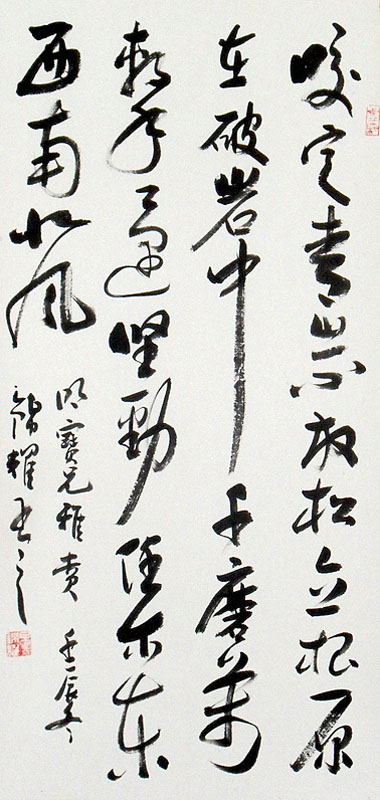 咬定青山不放松立根原
在破岩中千磨万
擊還坚勁任尔东
西南北风
明寶兄雅賞 壬辰冬
錦耀书